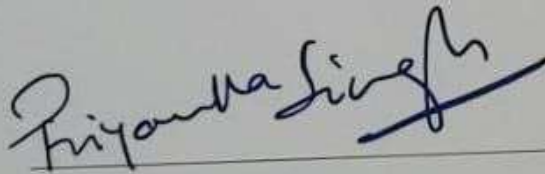 Priyanka Singh